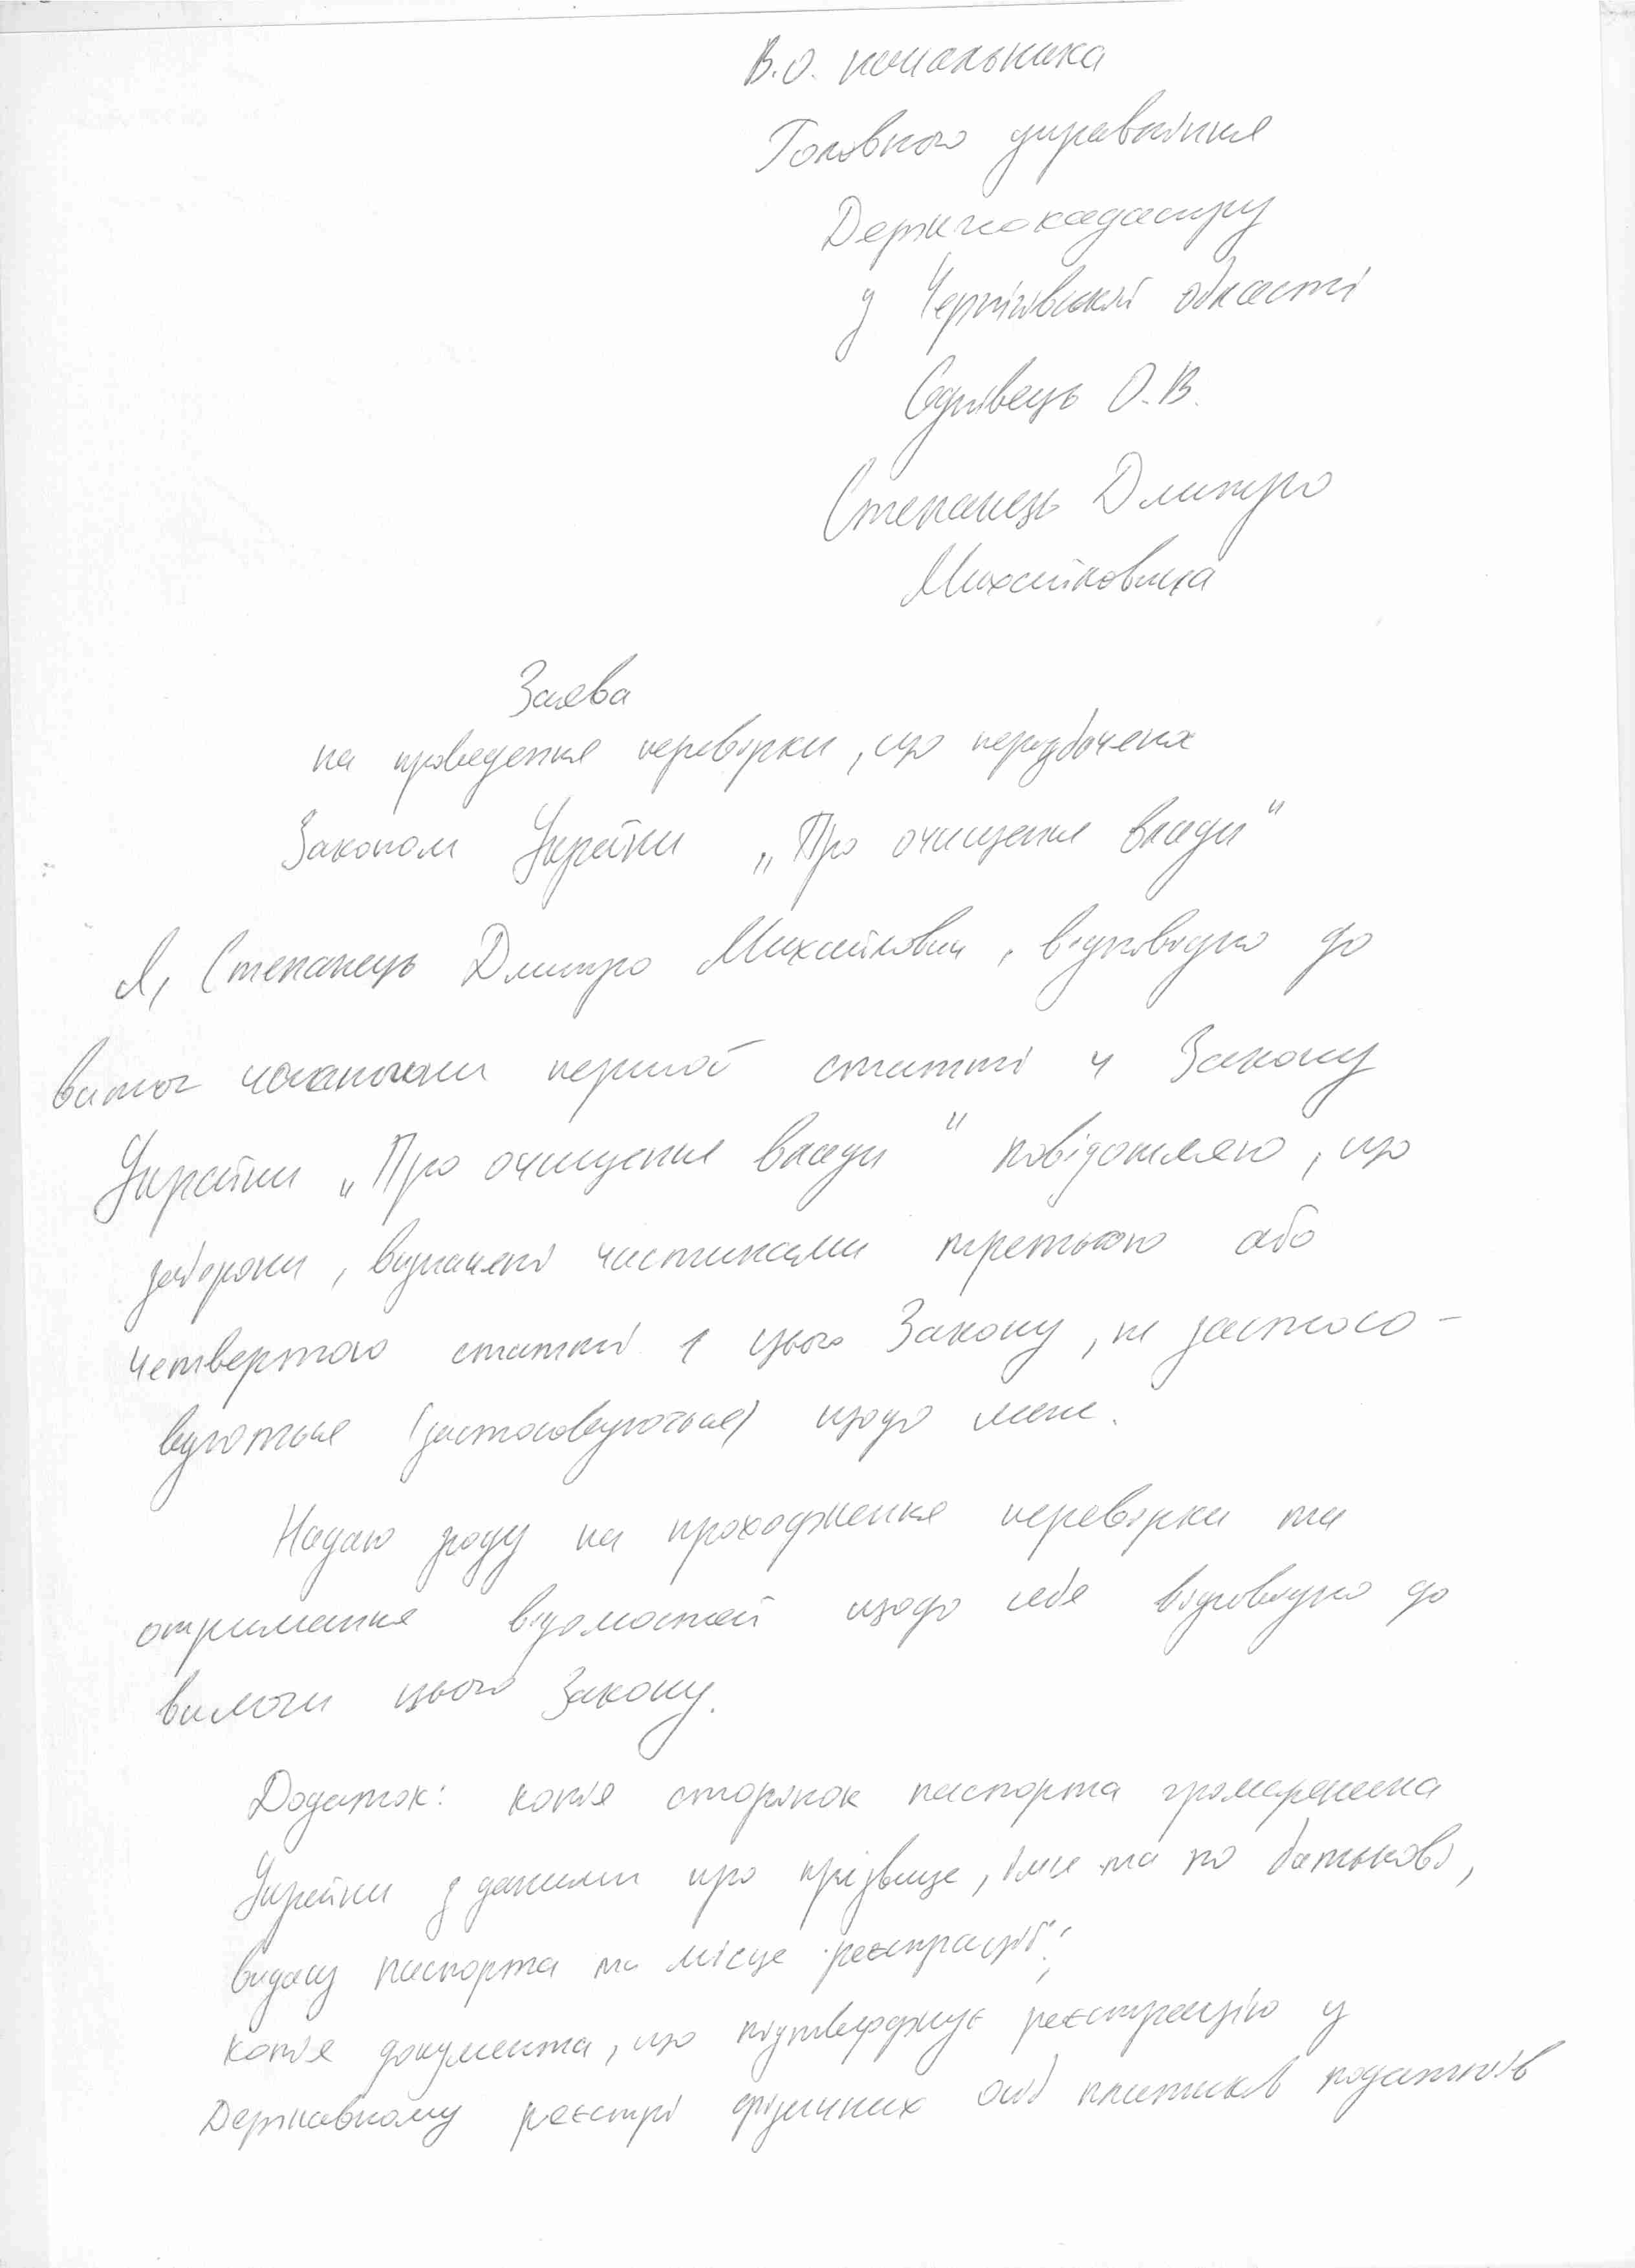 В.О. начальника
Головного управління
Держгеокадастру
у Чернігівській області
О.В.
Степанець Дмитро
Михайловича
Заява
на проведення перевірки, що передбачена
Законом України „Про очищення влади"
Я, Степанець Дмитро Михайлович, відповідно до
вимог першої статті 4 Закону
України „Про очищення влади" повідомляю, що
заборони, визначені частинами третьою або
четвертою статті 1 цього Закону, не застосо-
вуються (застосовуються) щодо мене.
Надаю згоду на проходження перевірки та
отримання відомостей щодо себе відповідно до
вимоги цього Закону.
Додаток: копія сторінок паспорта громадянина
України з даними про прізвище, ім'я та по батькові,
видачу паспорта та місце реєстрації;
копія документа, що підтверджує реєстрацію у
Державному реєстрі фізичних осіб платників податків